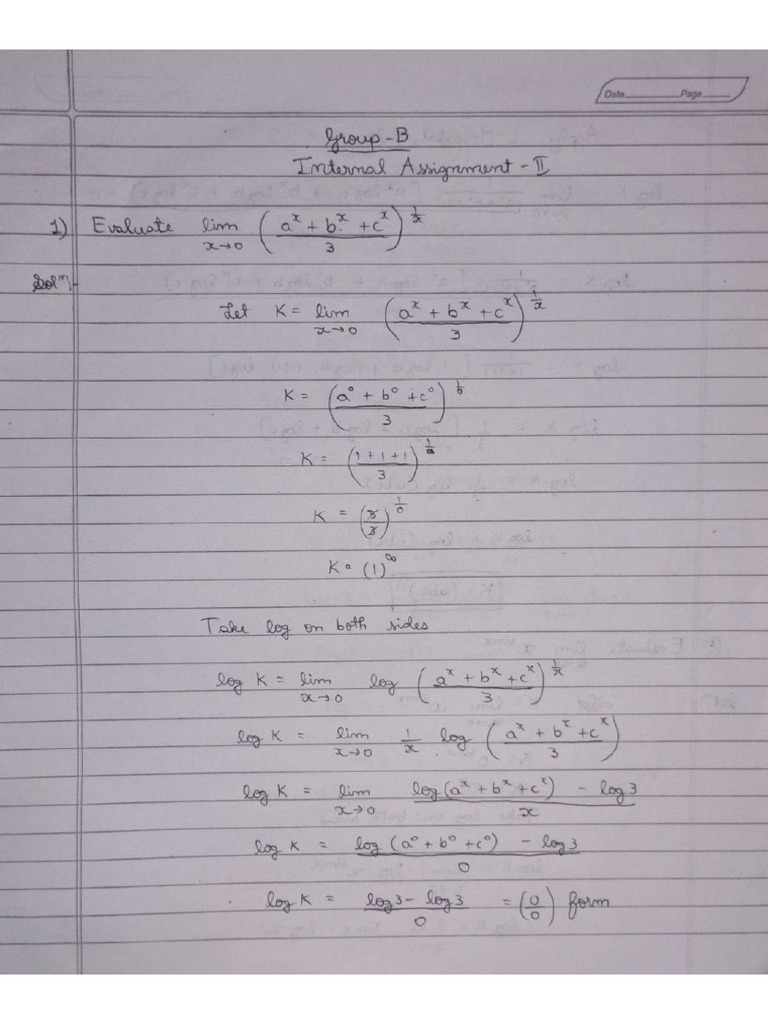 Date Page
Group-B
Internal Assignment-II
1) Evaluate lim x→0 ((a^x + b^x + c^x)/3)^(1/x)
Solⁿ-
Let K = lim x→0 ((a^x + b^x + c^x)/3)^(1/x)
K = ((a^0 + b^0 + c^0)/3)^(1/0)
K = ((1+1+1)/3)^(1/0)
K = (3/3)^(1/0)
K = (1)^∞
Take log on both sides
log K = lim x→0 log ((a^x + b^x + c^x)/3)^(1/x)
log K = lim x→0 1/x log ((a^x + b^x + c^x)/3)
log K = lim x→0 (log(a^x + b^x + c^x) - log3)/x
log K = (log (a^0 + b^0 + c^0) - log3)/0
log K = (log3 - log3)/0 = (0/0) form